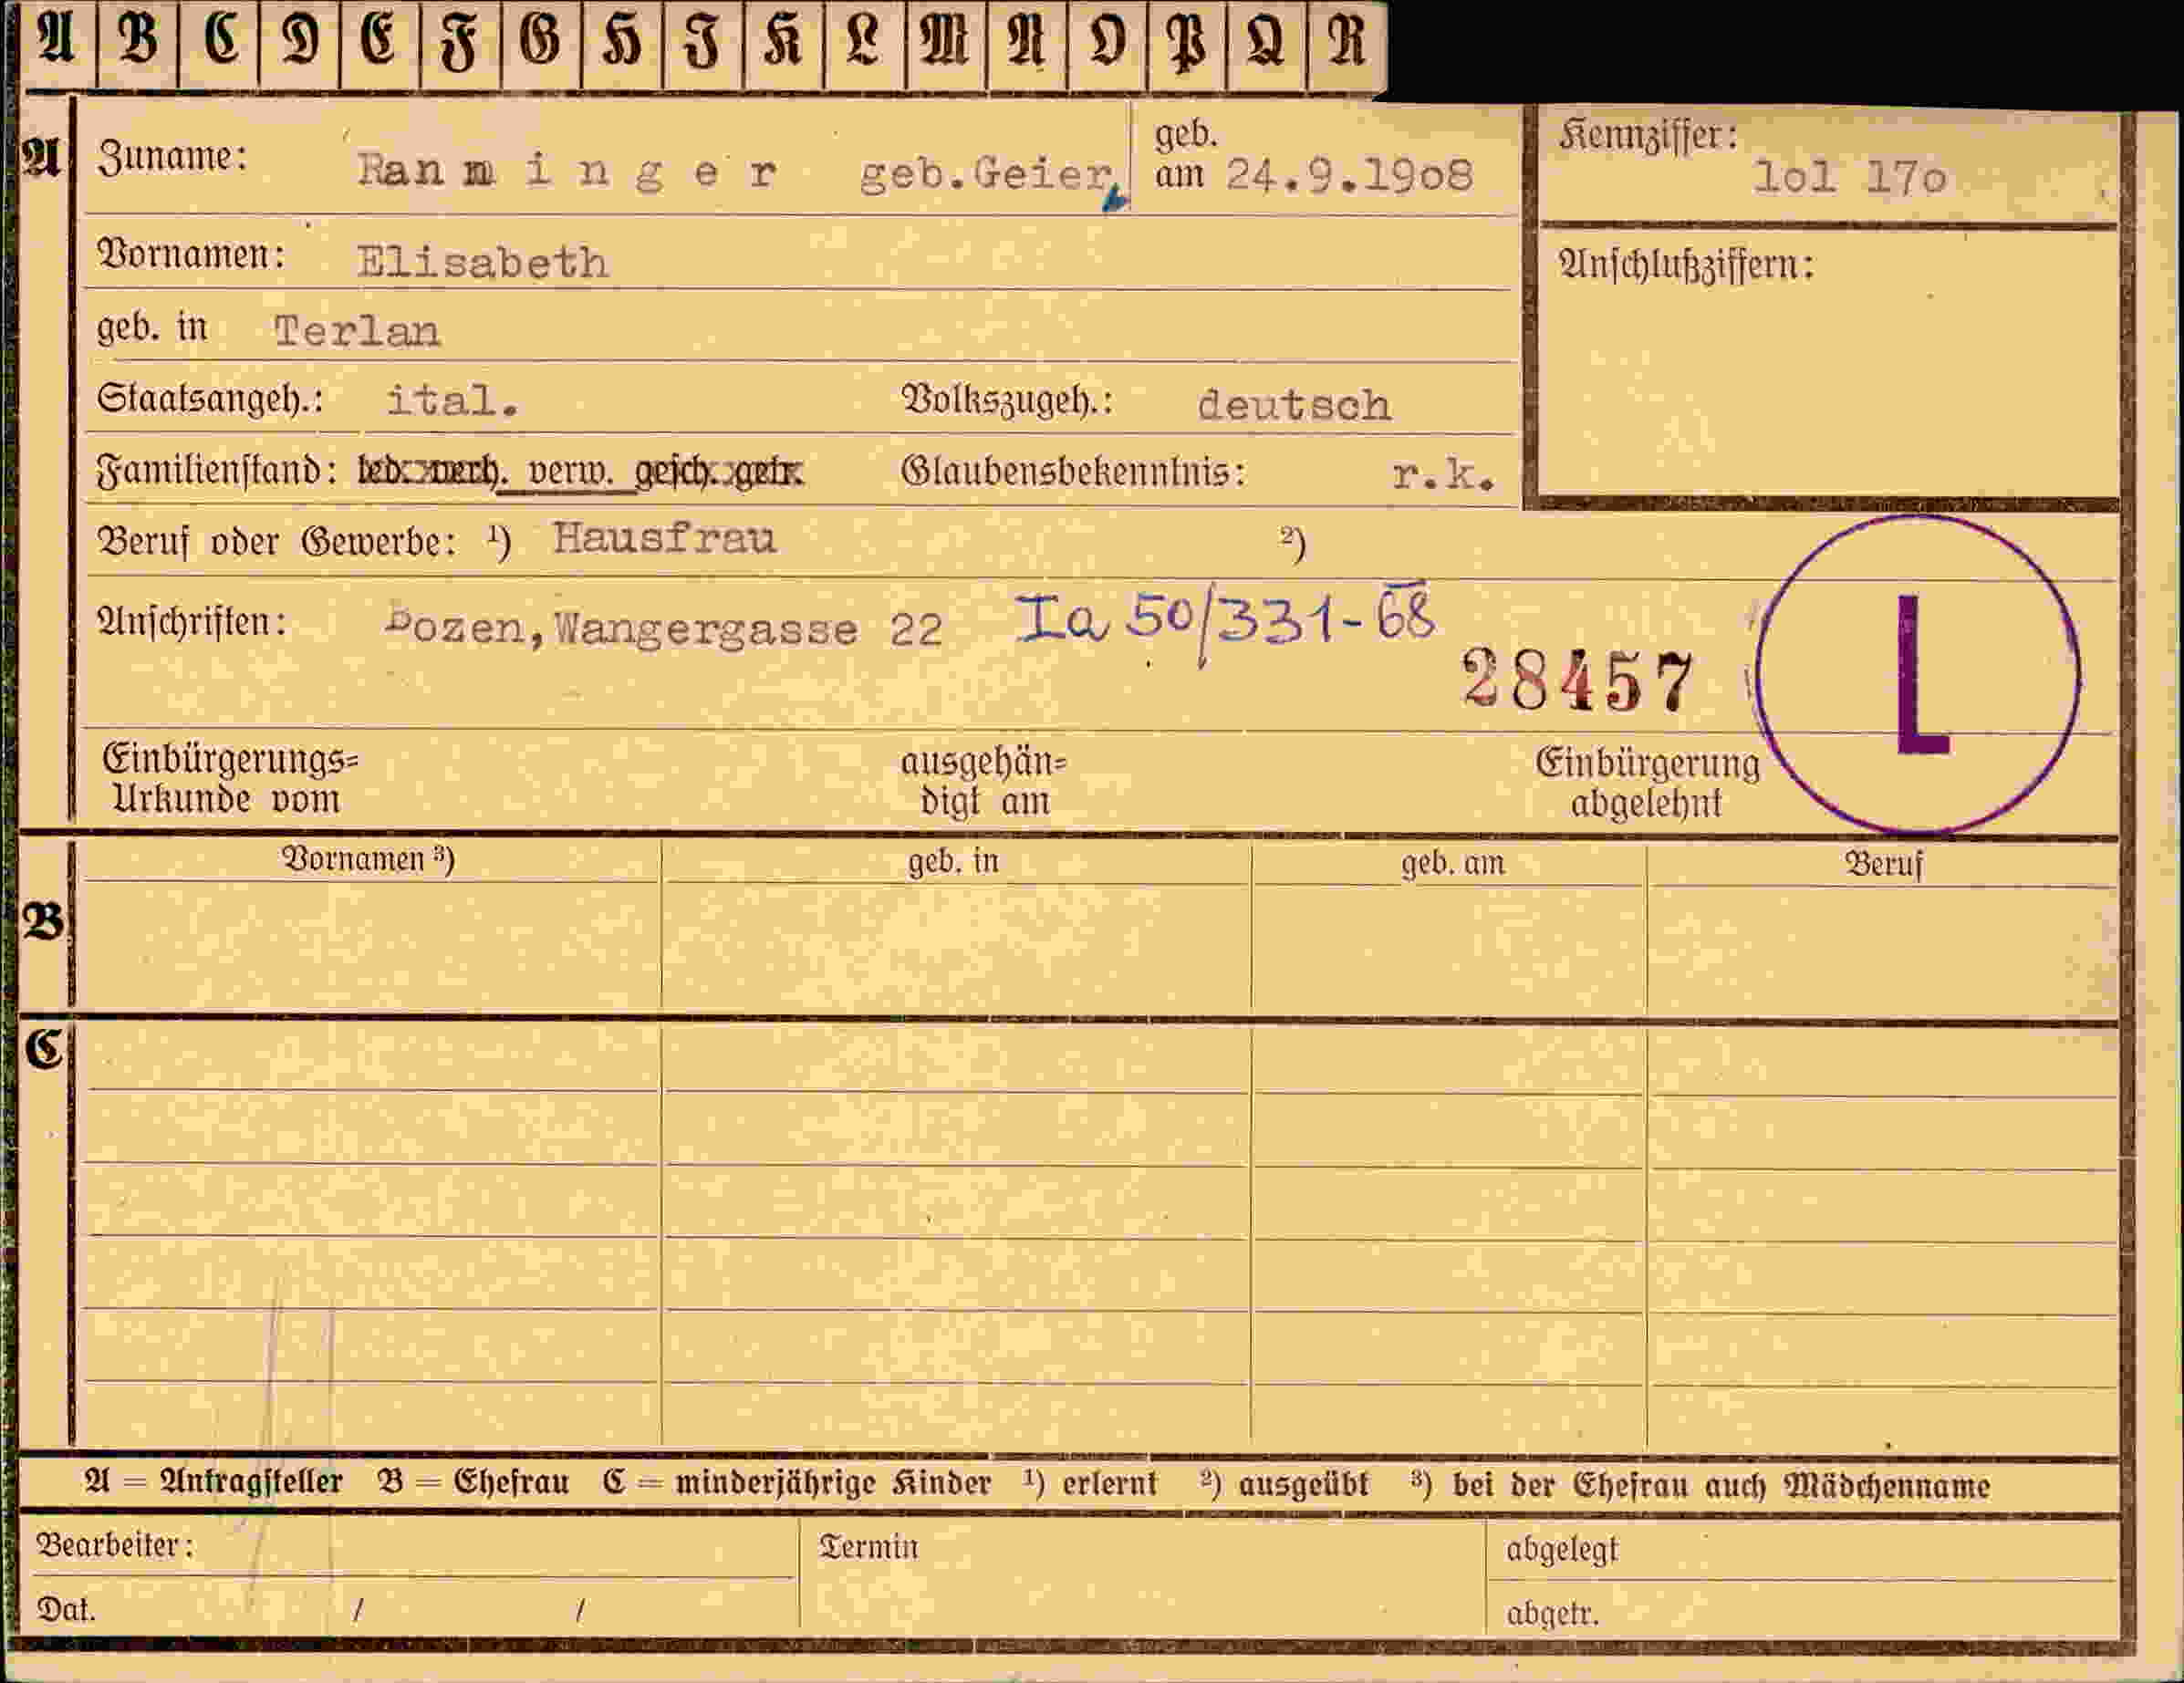 A B C D E F G H I K L M N O P Q R
A Zuname: Ranminger geb.Geier, geb. am 24.9.19o8 Kennziffer: lol 17o
Vornamen: Elisabeth Anschlußziffern:
geb. in Terlan
Staatsangeh.: ital. Volkszugeh.: deutsch
Familienstand: led. verh. verw. gesch. getr. Glaubensbekenntnis: r.k.
Beruf oder Gewerbe: ¹) Hausfrau ²)
Anschriften: Bozen,Wangergasse 22 Ia 50/331-68
28457 L
Einbürgerungs= ausgehän= Einbürgerung
Urkunde vom digt am abgelehnt
Vornamen ³) geb. in geb. am Beruf
B
C
A = Antragsteller B = Ehefrau C = minderjährige Kinder ¹) erlernt ²) ausgeübt ³) bei der Ehefrau auch Mädchenname
Bearbeiter: Termin abgelegt
Dat. / / abgetr.